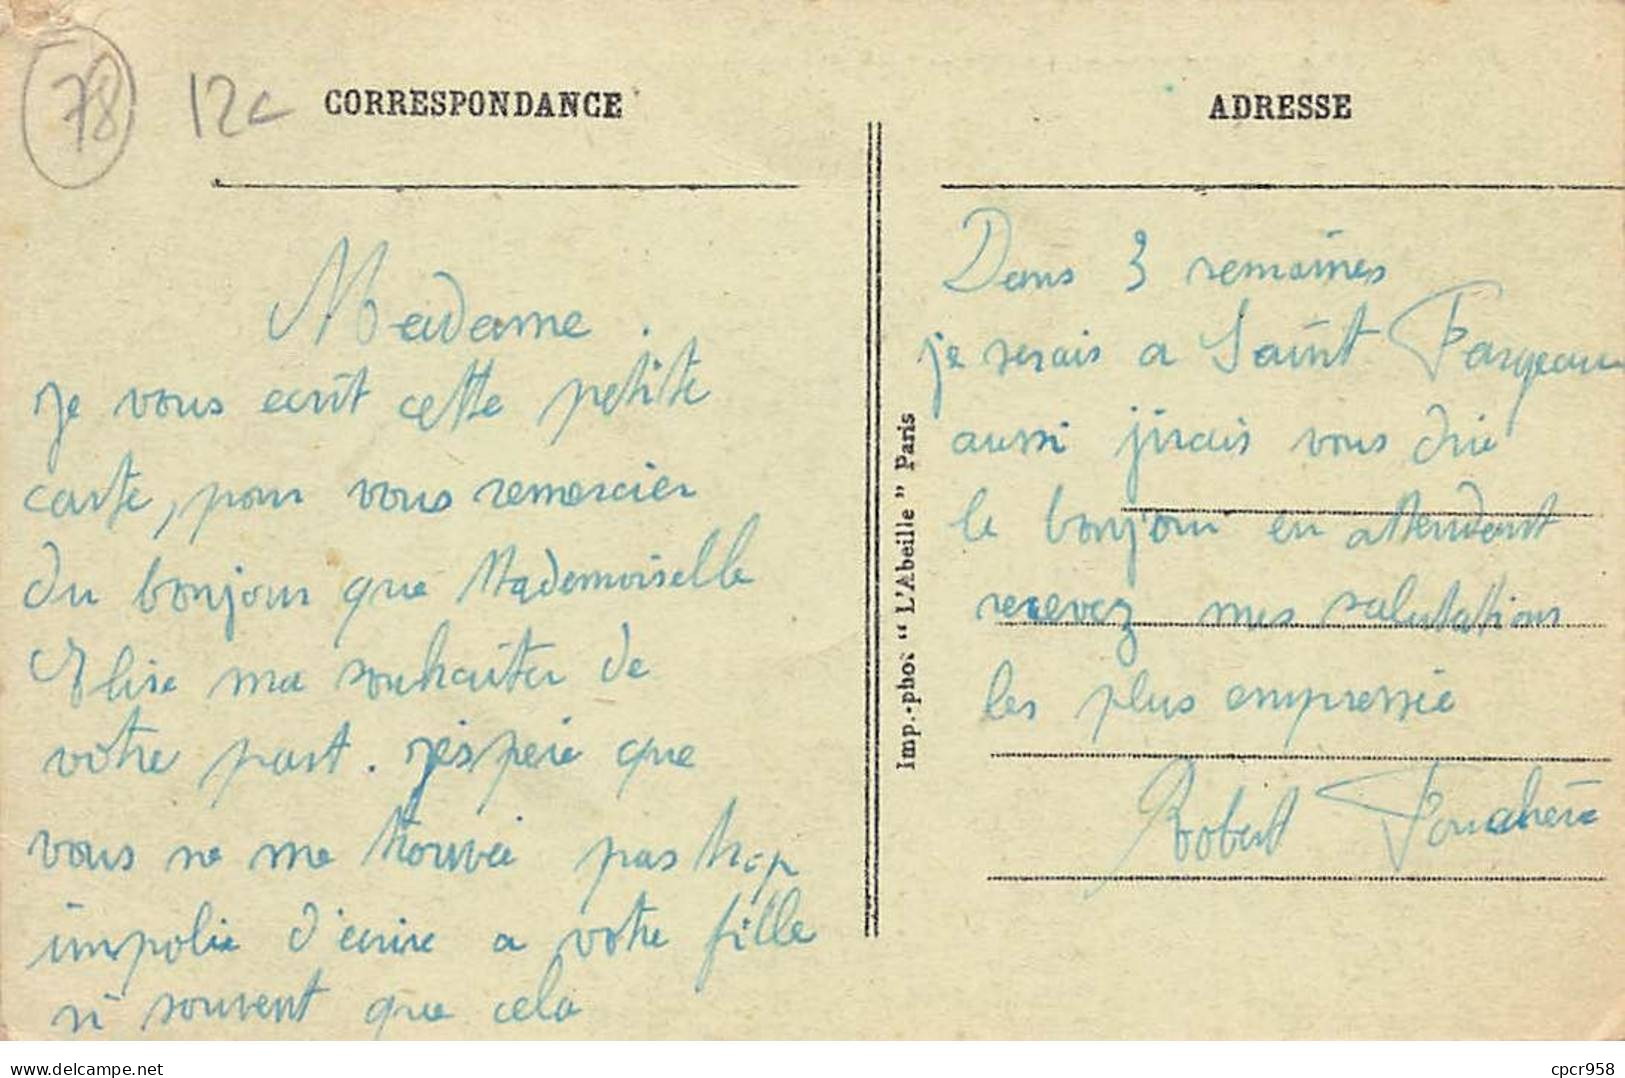 78 12c
CORRESPONDANCE
Madame.
je vous ecrit cette petite
carte, pour vous remercier
du bonjour que Mademoiselle
Elise ma souhaiter de
votre part. j'espère que
vous ne me trouvée pas trop
impolie d'écrire a votre fille
si souvent que cela
Imp.-phot "L'Abeille" Paris
ADRESSE
Dans 3 semaines
je serais a Saint Fargeau
aussi jirais vous dire
le bonjour en attendant
recevez mes salutations
les plus empressie
Robert
www.delcampe.net
cpcr958